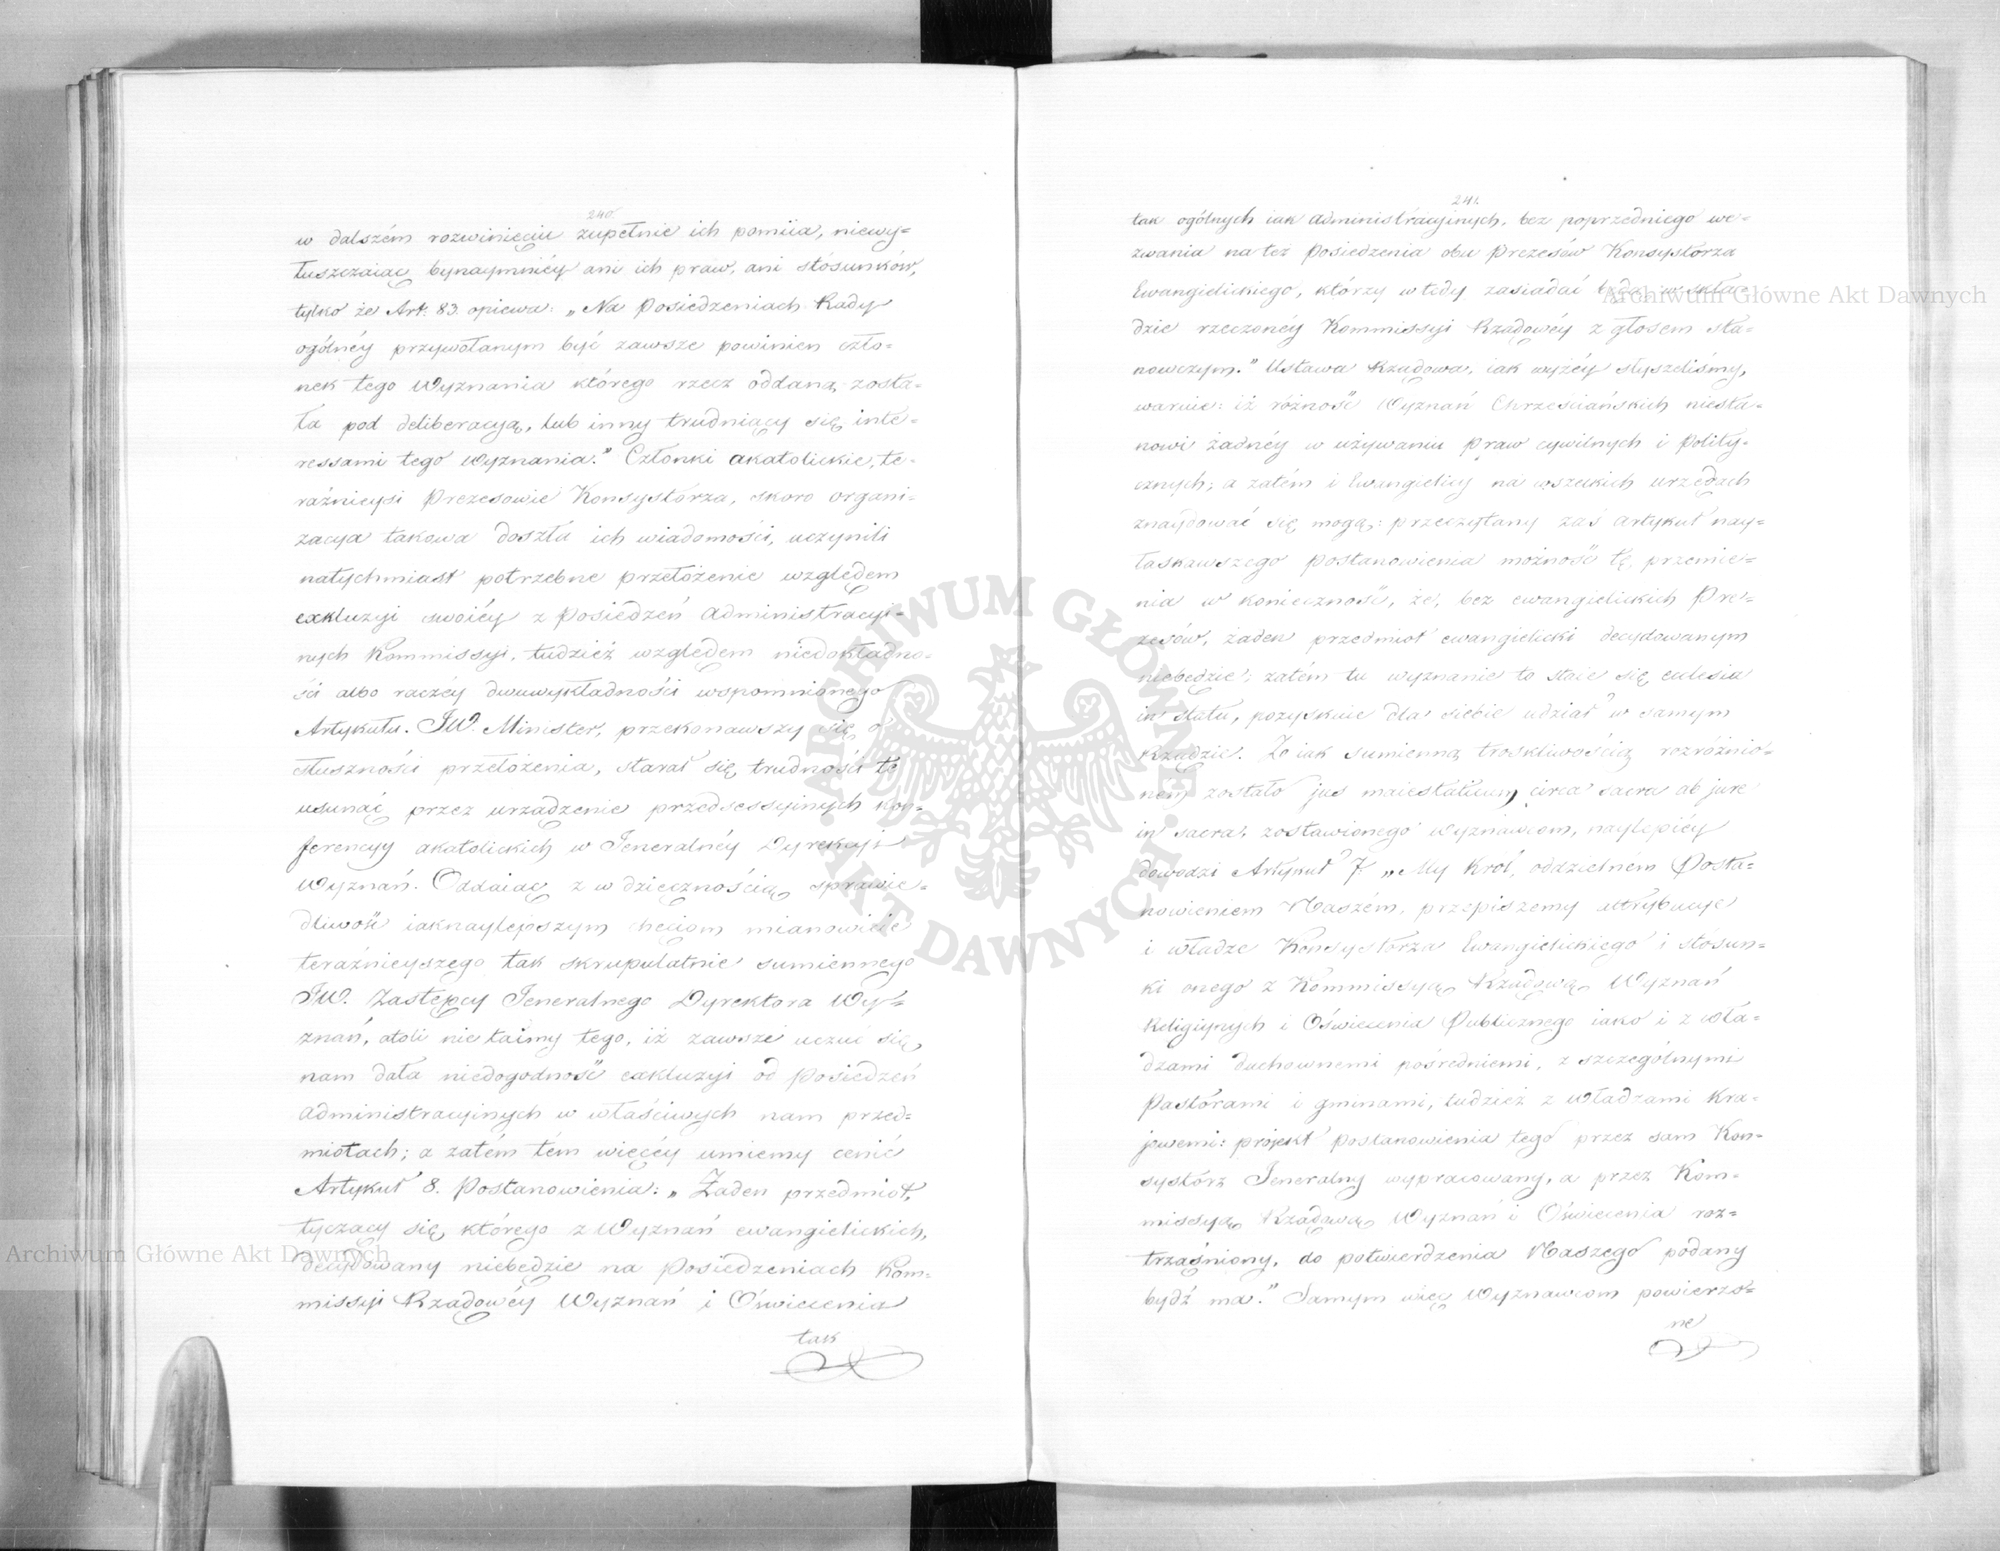 240.
w dalszém rozwinięciu zupełnie ich pomiia, niewy=
łuszczaiąc bynaymniéy ani ich praw, ani stósunków,
tylko że Art. 83. opiewa: „Na Posiedzeniach Rady
ogólnéy przywołanym być zawsze powinien czło=
nek tego Wyznania którego rzecz oddaną zosta=
ła pod deliberacyą, lub inny trudniący się inte=
ressami tego Wyznania." Członki akatolickie, te=
raźnieysi Prezesowie Konsystorza, skoro organi=
zacya takowa doszła ich wiadomości, uczynili
natychmiast potrzebne przełożenie względem
exkluzyi swoiéy z Posiedzeń administracyi=
nych Kommissyi, tudzież względem niedokładno=
ści albo raczéy dwuwykładności wspomnionego
Artykułu. JW. Minister, przekonawszy się o
słuszności przełożenia, starał się trudności te
usunąć przez urządzenie przedsessyinych kon=
ferencyy akatolickich w Jeneralnéy Dyrekcyi
Wyznań. Oddaiąc z wdzięcznością sprawie=
dliwość iaknaylepszym chęciom mianowicie
teraźnieyszego tak skrupulatnie sumiennego
JW. Zastępcy Jeneralnego Dyrektora Wy=
znań, atoli nie taimy tego, iż zawsze uczuć się
nam dała niedogodność exkluzyi od Posiedzeń
administracyinych w właściwych nam przed=
miotach; a zatém tém więcéy umiemy cenić
Artykuł 8. Postanowienia: „Żaden przedmiot,
tyczący się którego z Wyznań ewangielickich,
decydowany niebędzie na Posiedzeniach Kom=
missyi Rządowéy Wyznań i Oświecenia
tak
241.
tak ogólnych iak administracyinych, bez poprzedniego we=
zwania na też Posiedzenia obu Prezesów Konsystorza
Ewangielickiego, którzy wtedy zasiadać będą w skła=
dzie rzeczonéy Kommissyi Rządowéy z głosem sta=
nowczym." Ustawa Rządowa, iak wyżéy słyszeliśmy,
waruie: iż różność Wyznań Chrześciańskich niesta=
nowi żadnéy w używaniu praw cywilnych i polity=
cznych; a zatém i Ewangielicy na wszelkich urzędach
znaydować się mogą: przeczytany zaś Artykuł nay=
łaskawszego Postanowienia możność tę przemie=
nia w konieczność, że, bez ewangielickich Pre=
zesów, żaden przedmiot ewangielicki decydowanym
niebędzie; zatém tu wyznanie to staie się eclesia
in statu, pozyskuie dla siebie udział w samym
Rządzie. Zo iak sumienną troskliwością rozróżnio=
nem zostało jus maiestaticum circa sacra ab jure
in sacra, zostawionego wyznawcom, naylepiéy
dowodzi Artykuł 7. „My Król, oddzielnem Posta=
nowieniem Naszém, przepiszemy attrybucye
i władze Konsystorza Ewangielickiego i stósun=
ki onego z Kommissyą Rządową Wyznań
Religiynych i Oświecenia Publicznego iako i z wła=
dzami duchownemi pośredniemi, z szczególnymi
Pastorami i gminami, tudzież z władzami kra=
jowemi: projekt postanowienia tego przez sam Kon=
systorz Jeneralny wypracowany, a przez Kom=
missyą Rządową Wyznań i Oświecenia roz=
trząśniony, do potwierdzenia Naszego podany
bydź ma." Samym więc Wyznawcom powierzo=
ne
Archiwum Główne Akt Dawnych
Archiwum Główne Akt Dawnych
ARCHIWUM GŁÓWNE AKT DAWNYCH